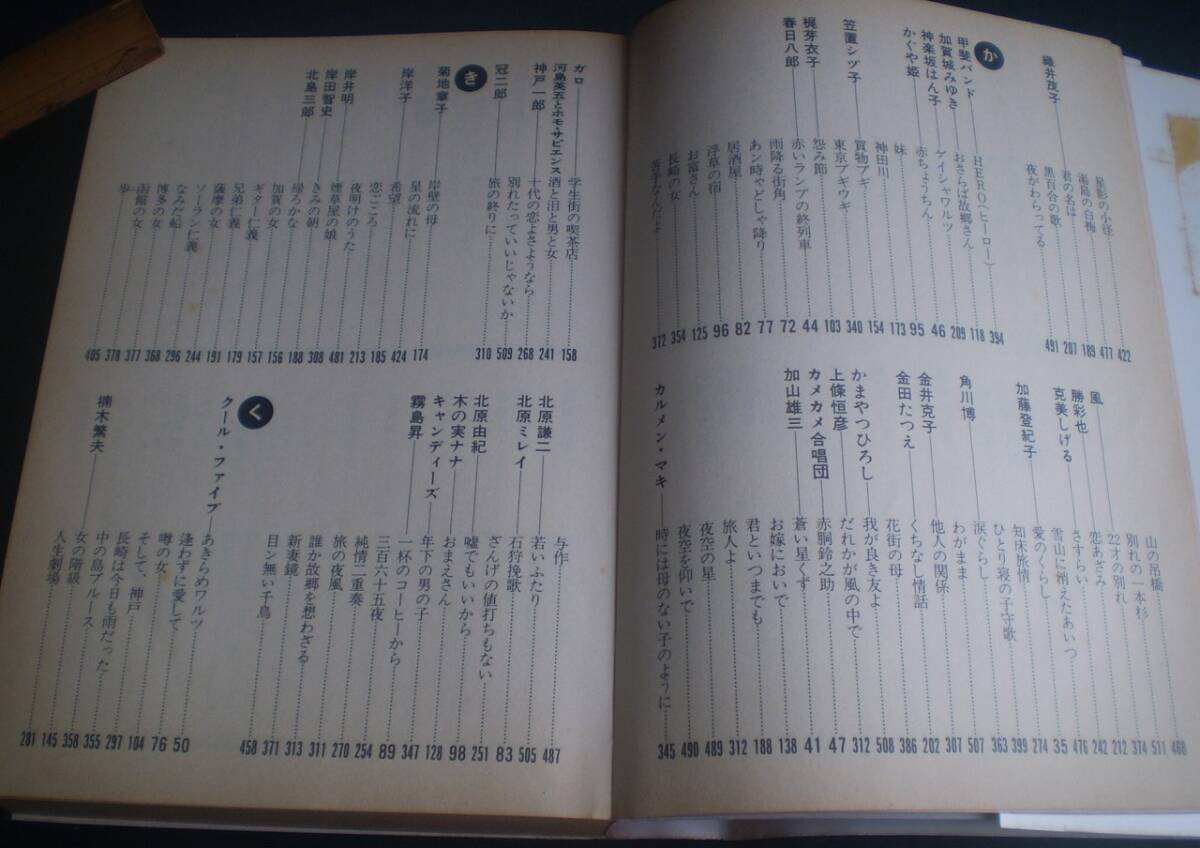 織井茂子
星影の小径 422
湯島の白梅 477
君の名は 189
黒百合の歌 207
夜がわらってる 491
か
甲斐バンド HERO(ヒーロー) 394
加賀城みゆき おさらば故郷さん 118
神楽坂はん子 ゲイシャワルツ 209
かぐや姫 赤ちょうちん 46
妹 95
神田川 173
笠置シヅ子 買物ブギ 154
東京ブギウギ 340
梶芽衣子 怨み節 103
春日八郎 赤いランプの終列車 44
雨降る街角 72
あン時ゃどしゃ降り 77
居酒屋 82
浮草の宿 96
お富さん 125
長崎の女 354
苦手なんだよ 372
山の吊橋 468
別れの一本杉 511
風 22才の別れ 374
勝彩也 恋あざみ 212
克美しげる さすらい 242
雪山に消えたあいつ 476
加藤登紀子 愛のくらし 35
知床旅情 274
ひとり寝の子守歌 399
角川博 涙ぐらし 363
わがまま 507
金井克子 他人の関係 307
金田たつえ くちなし情話 202
花街の母 386
かまやつひろし 我が良き友よ 508
上條恒彦 だれかが風の中で 312
カメカメ合唱団 赤胴鈴之助 47
加山雄三 蒼い星くず 41
お嫁においで 138
君といつまでも 188
旅人よ 312
夜空の星 489
夜空を仰いで 490
カルメン・マキ 時には母のない子のように 345
ガロ 学生街の喫茶店 158
河島英五とホモ・サピエンス 酒と泪と男と女 241
神戸一郎 十代の恋よさようなら 268
別れたっていいじゃないか 509
冠二郎 旅の終りに 310
き
菊地章子 岸壁の母 174
星の流れに 424
岸洋子 希望 185
恋ごころ 213
夜明けのうた 481
岸井明 煙草屋の娘 308
岸田智史 きみの朝 188
北島三郎 帰ろかな 156
加賀の女 157
ギター仁義 179
兄弟仁義 191
薩摩の女 244
ソーラン仁義 296
なみだ船 368
博多の女 377
函館の女 378
歩 405
与作 487
北原謙二 若いふたり 505
北原ミレイ 石狩挽歌 83
ざんげの値打ちもない 251
北原由紀 嘘でもいいから 98
木の実ナナ おまえさん 128
キャンディーズ 年下の男の子 347
霧島昇 一杯のコーヒーから 89
三百六十五夜 254
純情二重奏 270
旅の夜風 311
誰か故郷を想わざる 313
新妻鏡 371
目ン無い千鳥 458
く
クール・ファイブ あきらめワルツ 50
逢わずに愛して 76
噂の女 104
そして、神戸 297
長崎は今日も雨だった 355
中の島ブルース 358
楠木繁夫 女の階級 145
人生劇場 281